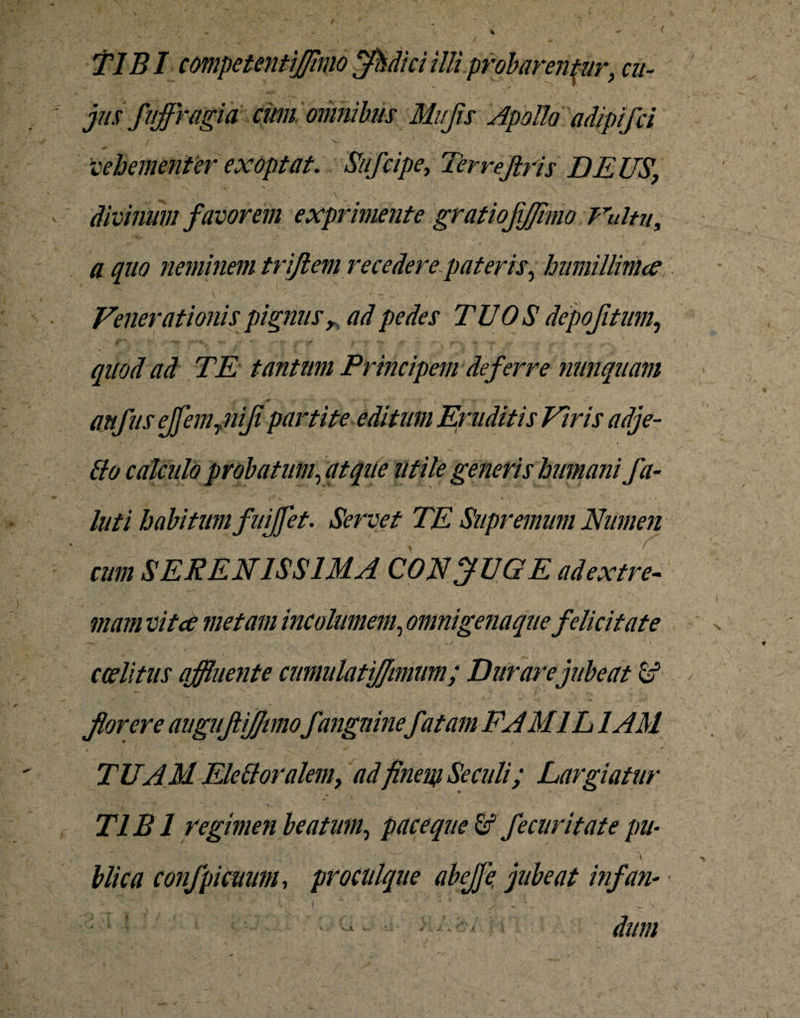 TIBI competentiſſimo Judici illi probarentur, cu-
jus ſuffragia cum omnibus Muſis Apollo adipiſci
vehementer exoptat. Suſcipe, Terreſtris DEUS,
divinum favorem exprimente gratioſiſſimo Vultu,
a quo neminem triſtem recedere pateris, humillimæ
Venerationis pignus, ad pedes TUOS depoſitum,
quod ad TE tantum Principem deferre nunquam
auſus eſſem, niſi partite editum Eruditis Viris adje-
cto calculo probatum, atque utile generis humani ſa-
luti habitum fuiſſet. Servet TE Supremum Numen
cum SERENISSIMA CONJUGE ad extre-
mam vitæ metam incolumem, omnigenaque felicitate
cœlitus affluente cumulatiſſimum; Durare jubeat &
florere auguſtiſſimo ſanguine ſatam FAMILIAM
TUAM Electoralem, ad finem Seculi; Largiatur
TIBI regimen beatum, paceque & ſecuritate pu-
blica conſpicuum, proculque abeſſe jubeat infan-
dum